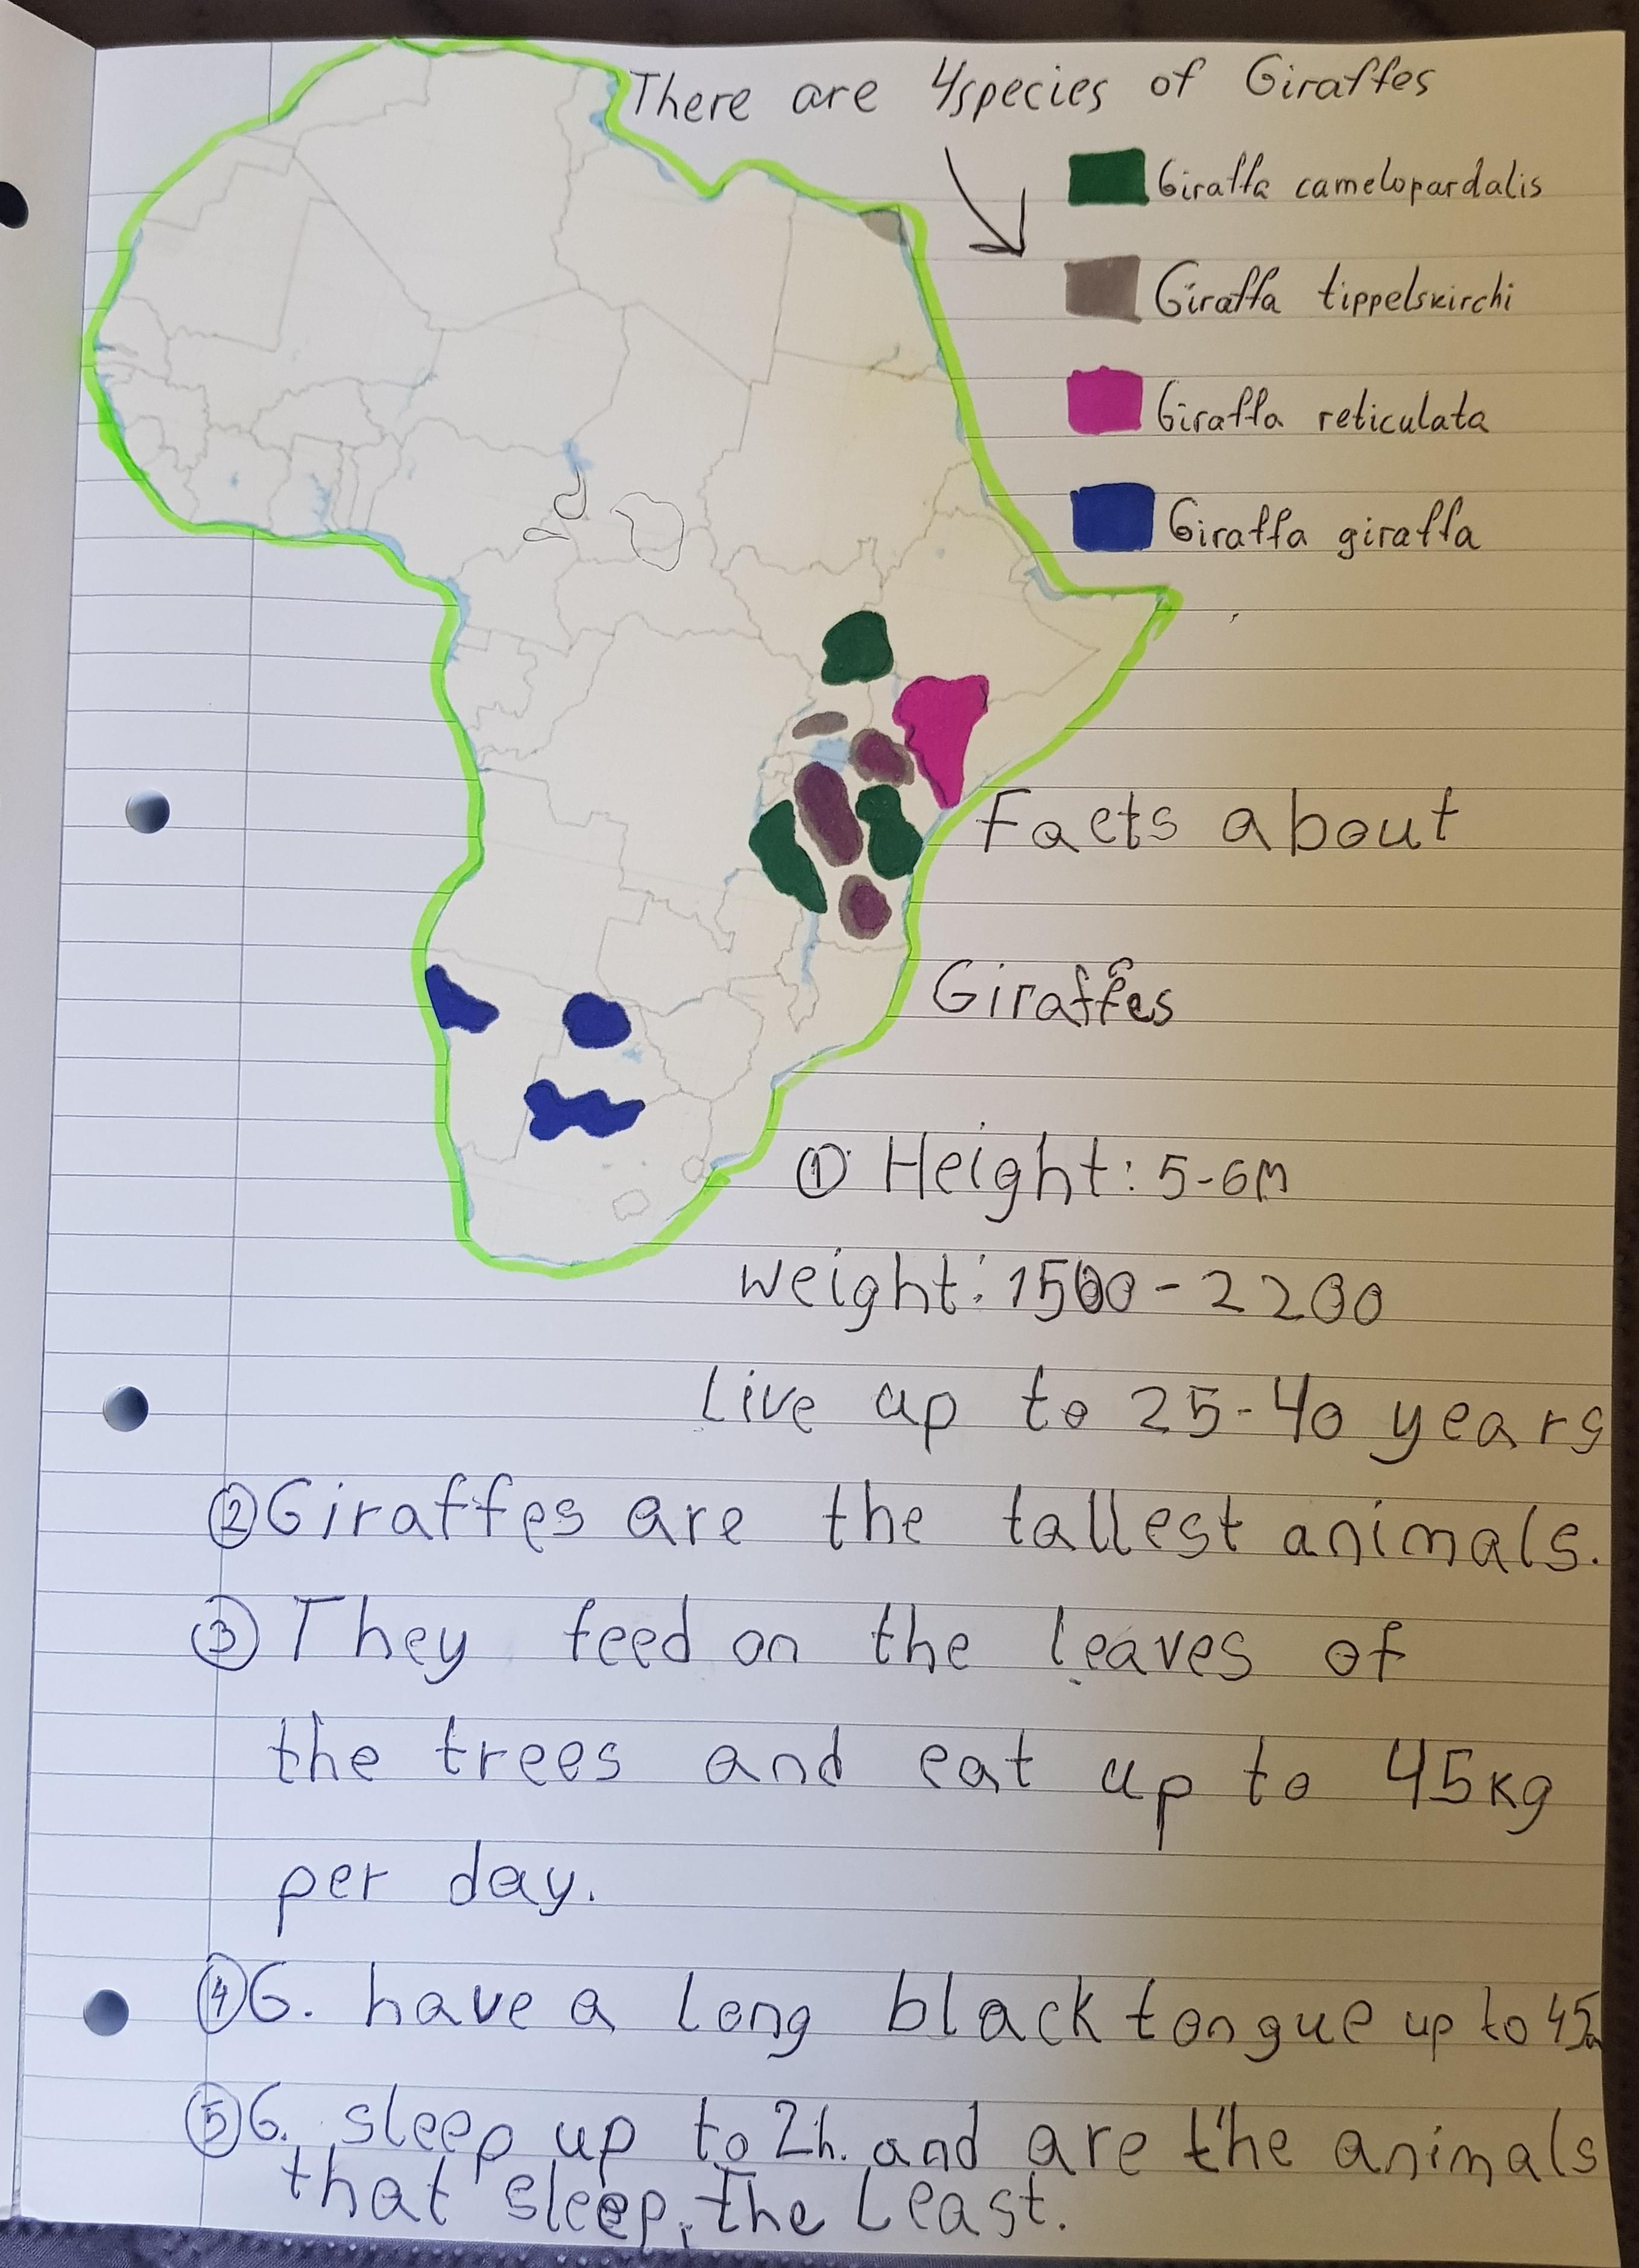 There are 4 species of Giraffes
Giraffa camelopardalis
Giraffa tippelskirchi
Giraffa reticulata
Giraffa giraffa
Facts about
Giraffes
① Height: 5-6m
weight: 1500 - 2200
Live up to 25-40 years
② Giraffes are the tallest animals.
③ They feed on the leaves of
the trees and eat up to 45kg
per day.
④ G. have a long black tongue up to 45
⑤ G. sleep up to 2h. and are the animals
that sleep, the least.